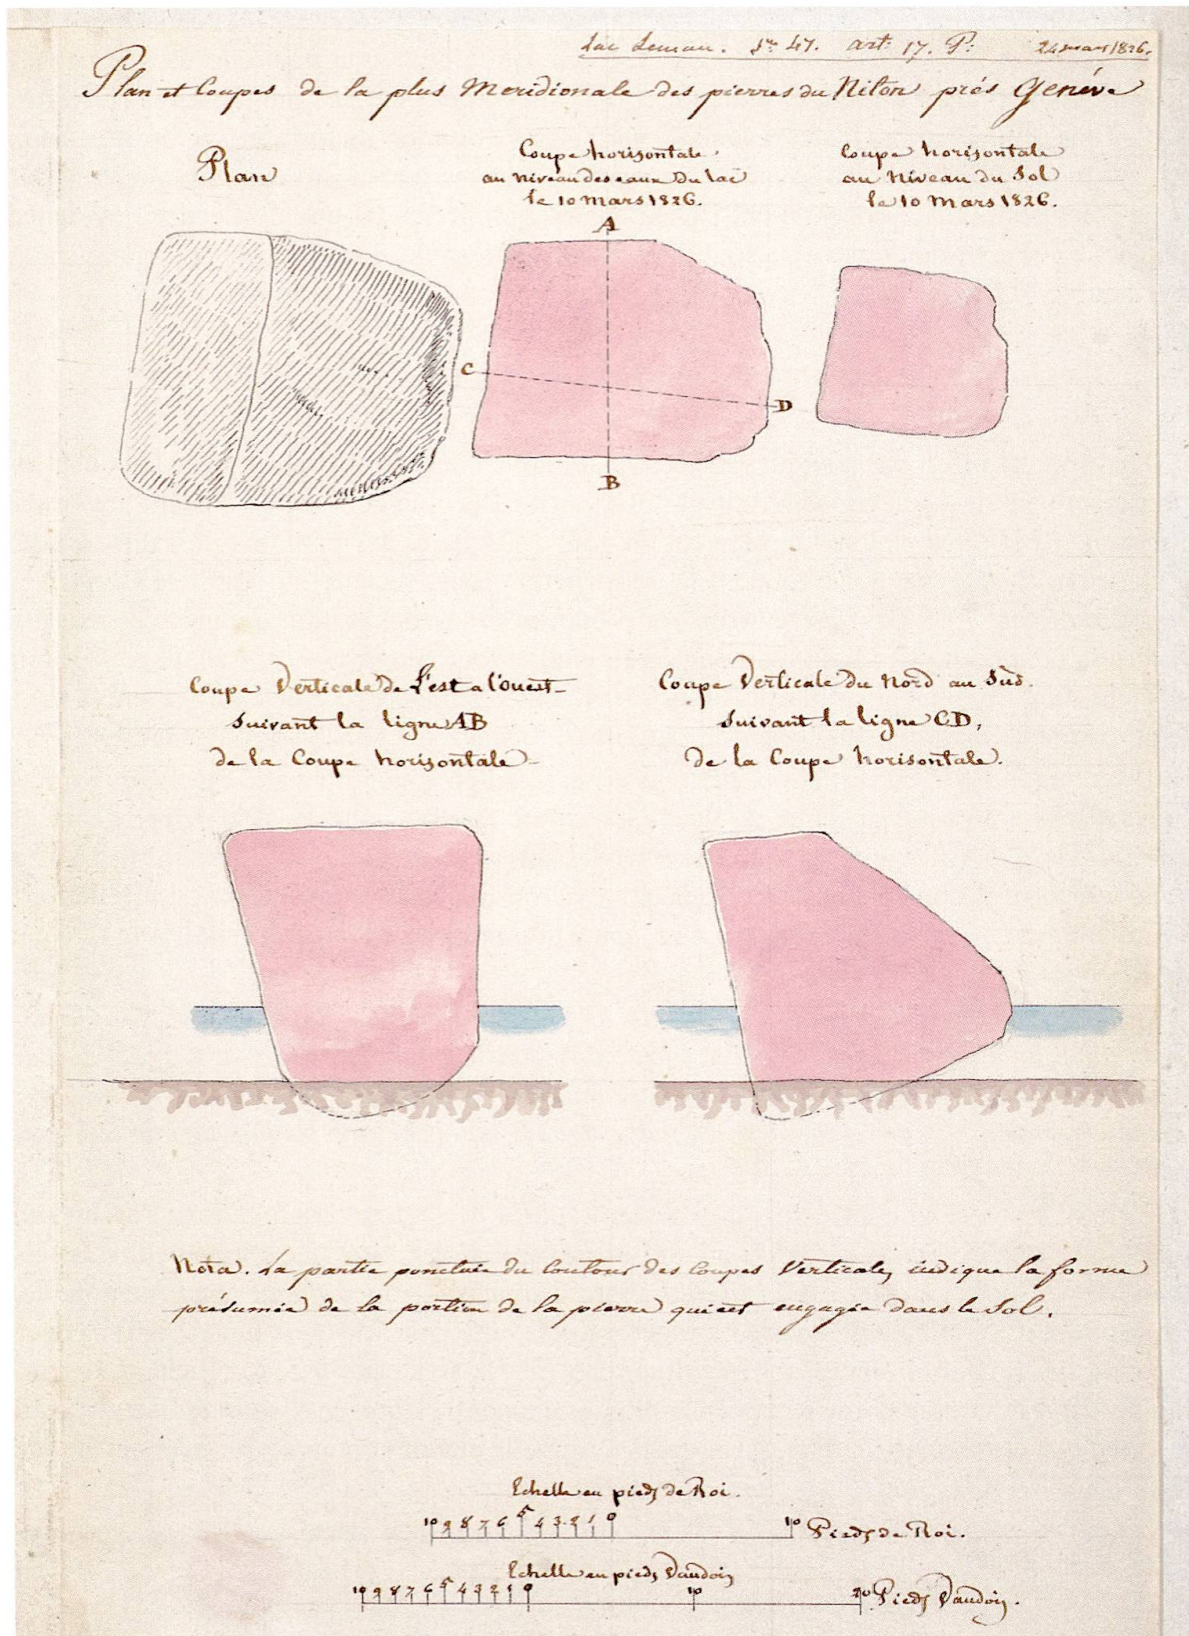 Lac Leman. Sn: 47. art: 17. P: 24 mars 1826.
Plan et Coupes de la plus Meridionale des pierres du Niton près Genève
Plan
Coupe horisontale
au niveau des eaux du lac
le 10 Mars 1826.
Coupe horisontale
au niveau du Sol
le 10 Mars 1826.
A
C
D
B
Coupe Verticale de l'est a l'ouest
Suivant la ligne AB
de la Coupe horisontale
Coupe Verticale du Nord au Sud.
Suivant la ligne CD,
de la Coupe horisontale.
Nota. La partie ponctuée du contour des Coupes Verticales, indique la forme
présumée de la portion de la pierre qui est engagée dans le Sol.
Echelle en pieds de Roi.
10 9 8 7 6 5 4 3 2 1 0 10 Pieds de Roi.
Echelle en pieds Vaudois
10 9 8 7 6 5 4 3 2 1 0 10 20 Pieds Vaudois.